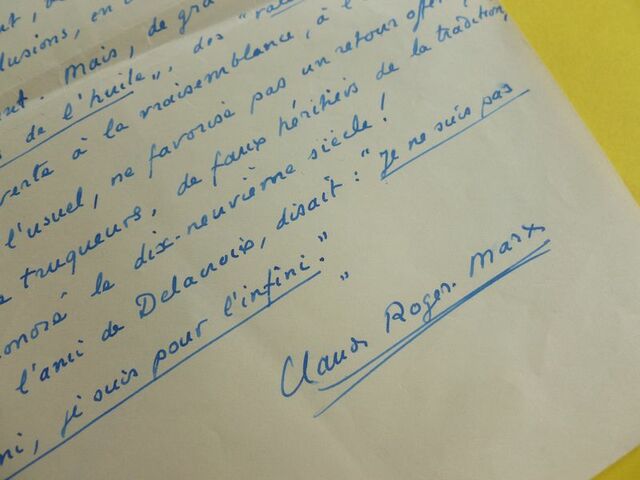 lusions, en
. Mais, de gra
de l'huile", des "
verte à la vraisemblance, à l'
l'usuel, ne favorisé pas un retour offen
truqueurs, de faux héritiers de la tradition,
honoré le dix-neuvième siècle!
l'ami de Delacroix, disait: "je ne suis pas
ni, je suis pour l'infini." "
Claude Roger. Marx